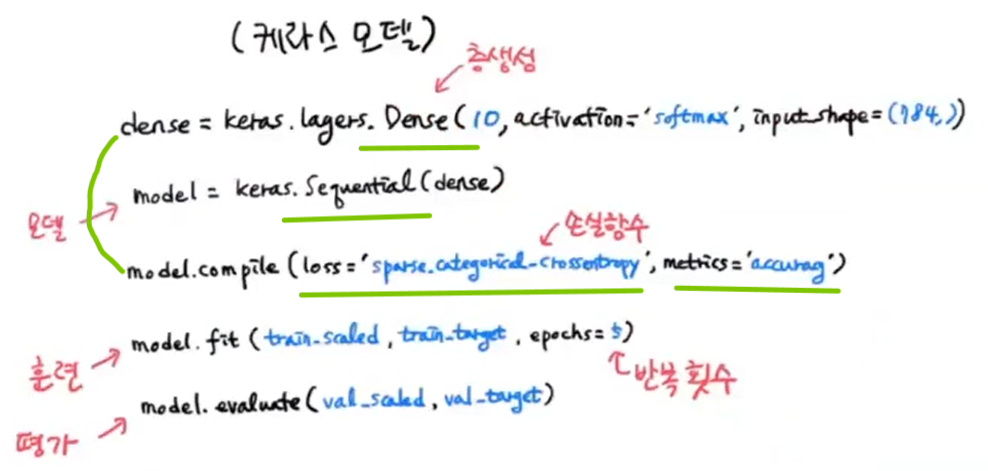 (케라스 모델)
층생성
dense = keras.layers.Dense(10, activation='softmax', input_shape=(784,))
model = keras.Sequential(dense)
모델
손실함수
model.compile(loss='sparse_categorical_crossentropy', metrics='accuracy')
model.fit(train_scaled, train_target, epochs=5)
훈련
반복 횟수
model.evaluate(val_scaled, val_target)
평가